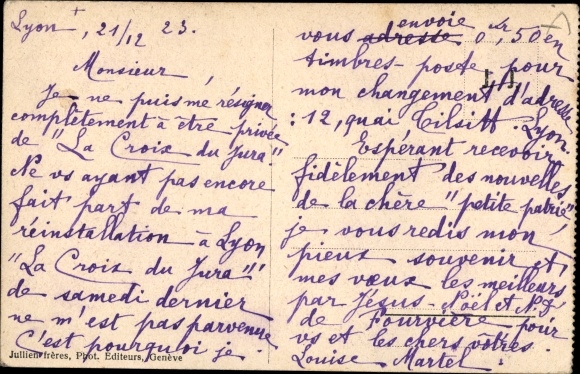 Lyon, 21/12 23.
Monsieur,
Je ne puis me résigner
complètement à être privée
de "La Croix du Jura"
Ne vs ayant pas encore
fait part de ma
réinstallation à Lyon
"La Croix du Jura"
de samedi dernier
ne m'est pas parvenue
C'est pourquoi je
Jullien frères, Phot. Editeurs, Genève
envoie
vous adresse 0fr,50 en
timbres-poste pour
mon changement d'adresse
: 12, quai Tilsitt. Lyon.
Espérant recevoir
fidèlement des nouvelles
de la chère "petite patrie",
je vous redis mon
pieux souvenir et
mes vœux les meilleurs
par Jésus-Noël et N.D.
de Fourvière pour
vs et les chers vôtres.
Louise Martel